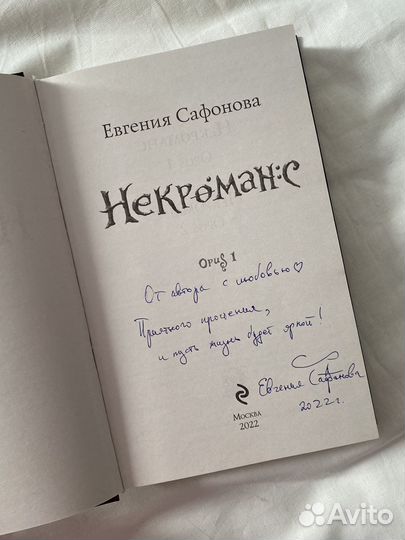 Евгения Сафонова
Некроманс
Opus 1
От автора с любовью♡
Приятного прочтения,
и пусть жизнь будет яркой!
Евгения Сафонова
2022г.
Москва
2022
Avito